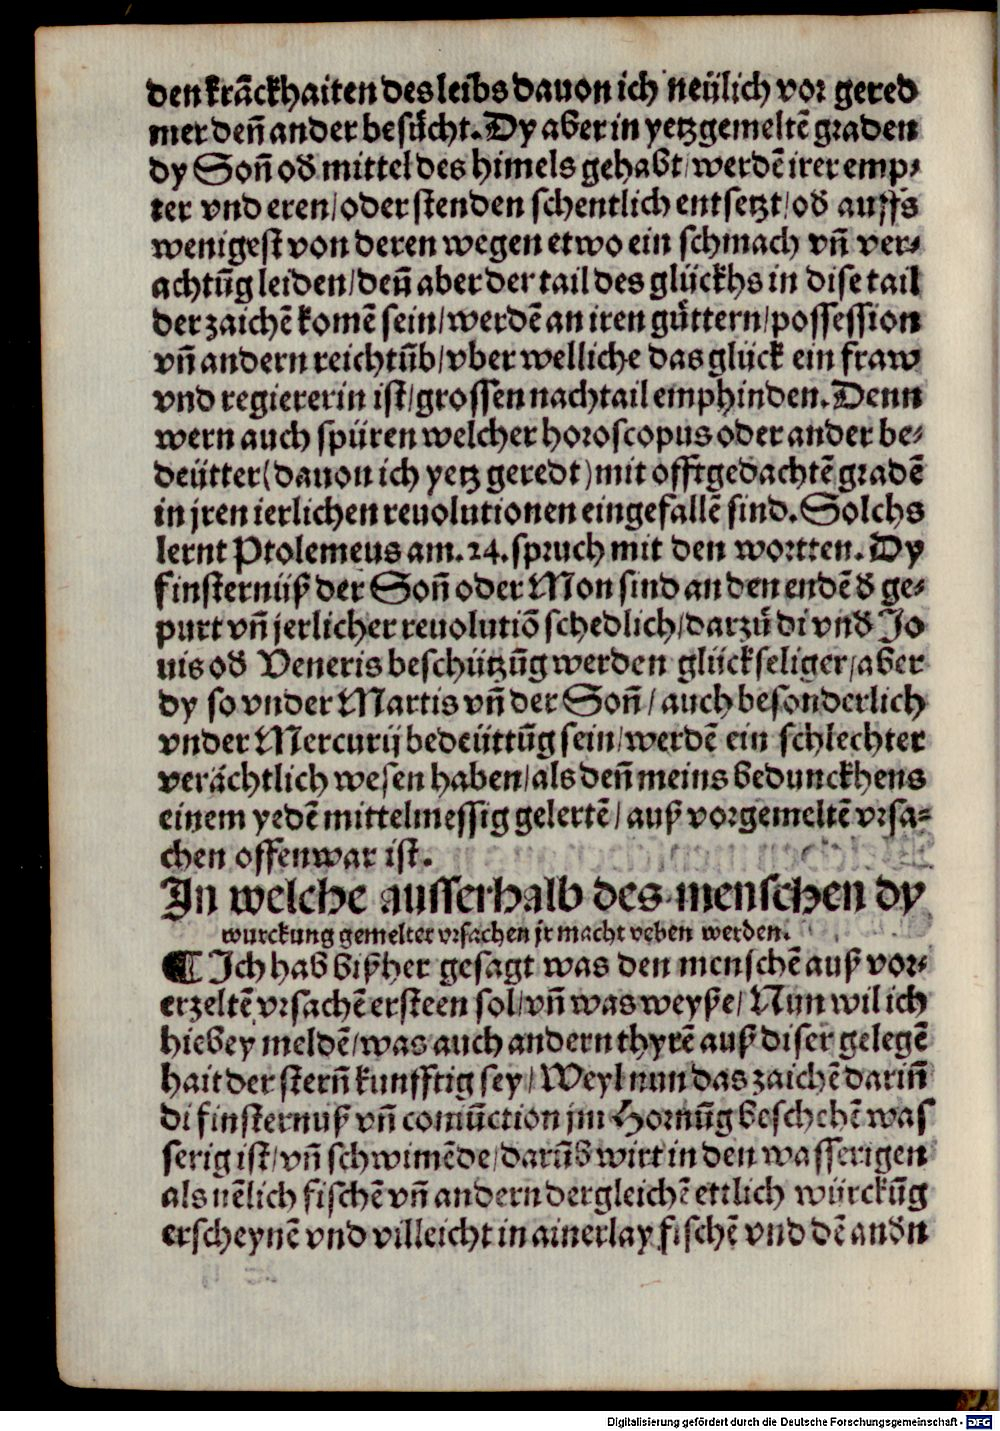 den krãckhaiten des leibs dauon ich neülich vor gered
mer deñ ander besůcht. Dy aber in yetz gemeltẽ graden
dy Soñ od mittel des himels gehabt/ werdẽ irer emp⸗
ter vnd eren/ oder stenden schentlich entsetzt/ od auffs
wenigest von deren wegen etwo ein schmach vñ ver⸗
achtũg leiden/ deñ aber der tail des glückhs in dise tail
der zaichẽ komẽ sein/ werdẽ an iren gůttern/ possession
vñ andern reichtũb/ vber welliche das glück ein fraw
vnd regiererin ist/ grossen nachtail emphinden. Denn
wern auch spüren welcher horoscopus oder ander be⸗
deütter (dauon ich yetz geredt) mit offtgedachtẽ gradẽ
in jren ierlichen reuolutionen eingefallẽ sind. Solchs
lernt Ptolemeus am. 24. spruch mit den wortten. Dy
finsternüß der Soñ oder Mon sind an den endẽ d ge⸗
purt vñ jerlicher reuolutiõ schedlich/ darzů di vnd Jo
uis od Veneris beschützũg werden glückseliger/ aber
dy so vnder Martis vñ der Soñ/ auch besonderlich
vnder Mercurij bedeüttũg sein/ werdẽ ein schlechter
verächtlich wesen haben/ als deñ meins bedunckhens
einem yedẽ mittelmessig gelertẽ/ auß vorgemeltẽ vrsa⸗
chen offenwar ist.
In welche ausserhalb des menschen dy
wurckung gemelter vrsachen jr macht veben werden.
¶ Ich hab bißher gesagt was den menschẽ auß vor⸗
erzeltẽ vrsachẽ ersteen sol/ vñ was weyße/ Nun wil ich
hiebey meldẽ/ was auch andern thyrẽ auß diser gelegẽ
hait der sterñ kunfftig sey/ Weyl nun das zaichẽ dariñ
di finsternuß vñ coniũction jm Hornũg beschehẽ was
serig ist/ vñ schwimẽde/ darũb wirt in den wasserigen
als nẽlich fischẽ vñ andern dergleichẽ ettlich würckũg
erscheynẽ vnd villeicht in ainerlay fischẽ vnd dẽ andn
Digitalisierung gefördert durch die Deutsche Forschungsgemeinschaft - DFG